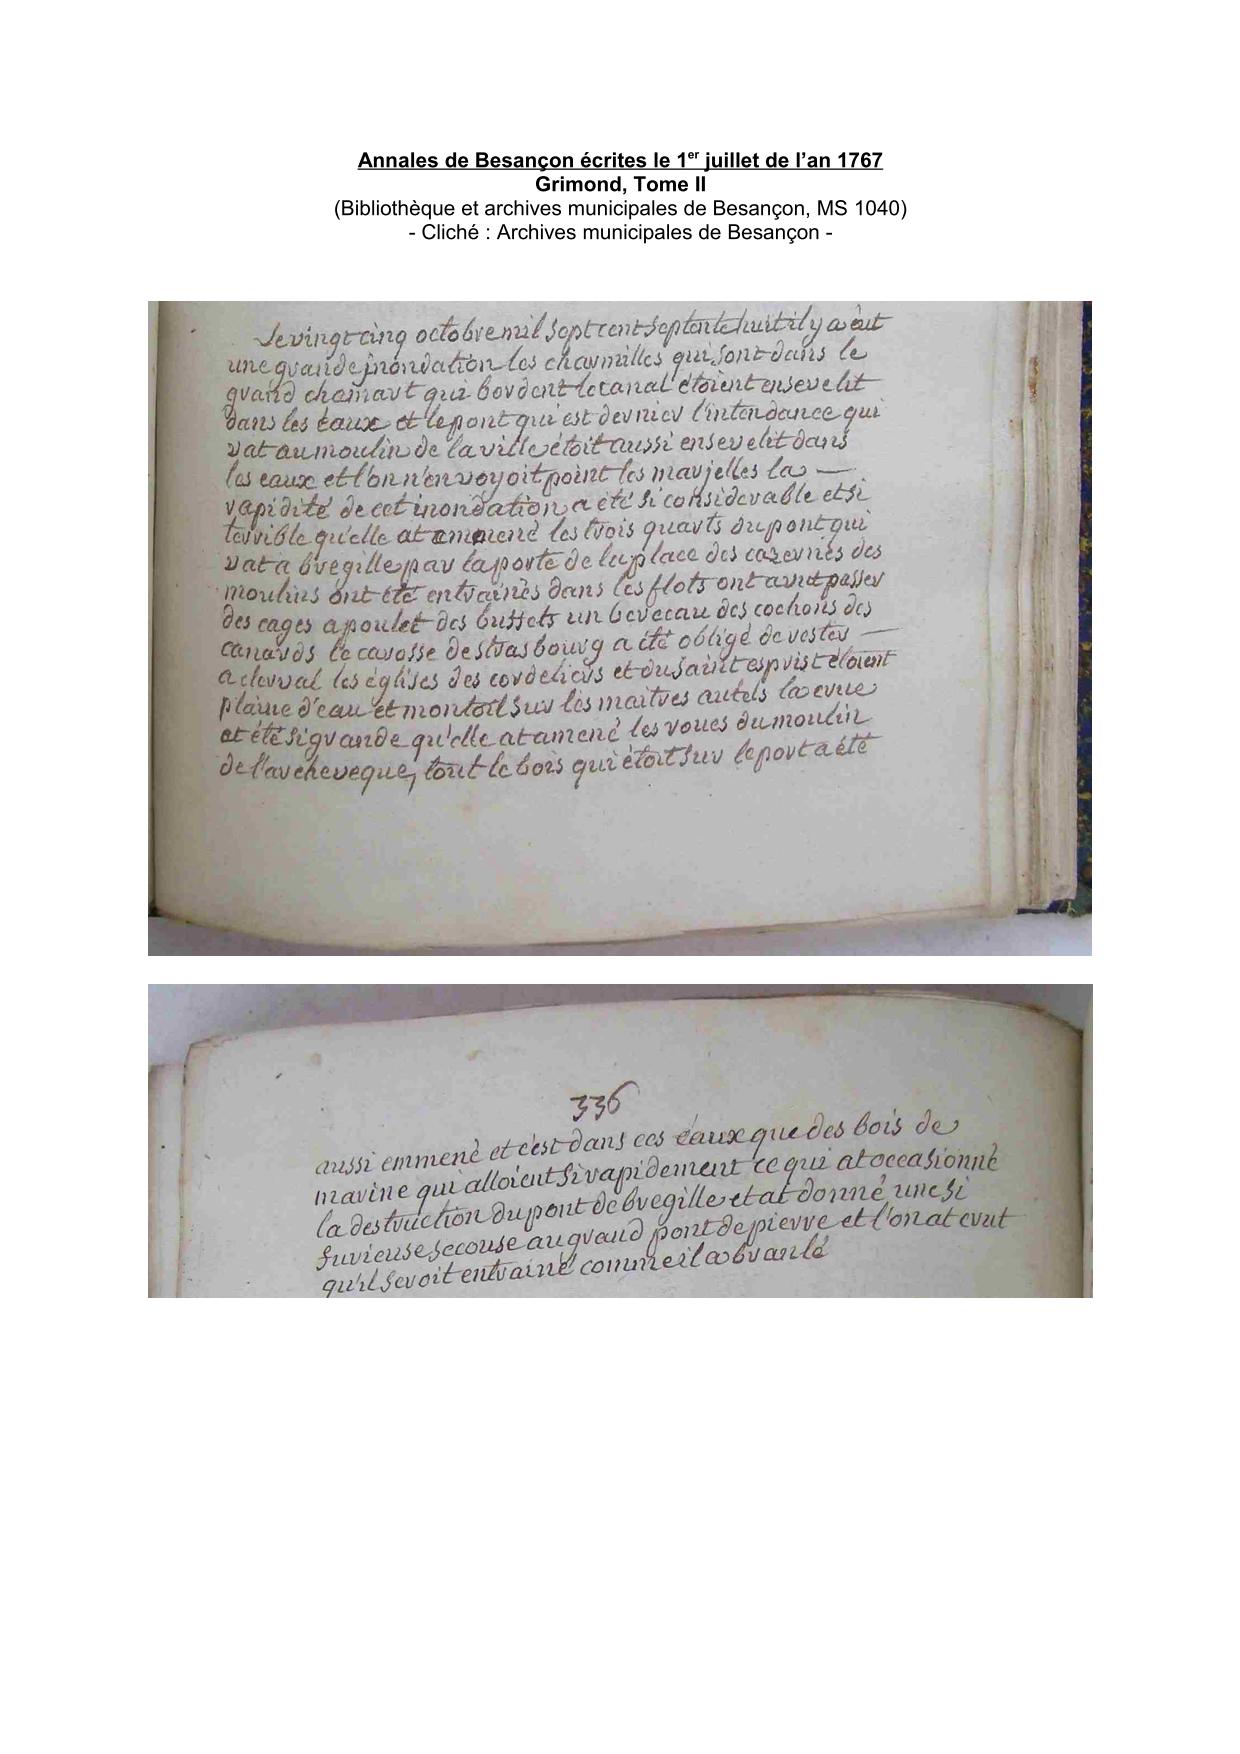 Annales de Besançon écrites le 1er juillet de l'an 1767
Grimond, Tome II
(Bibliothèque et archives municipales de Besançon, MS 1040)
- Cliché : Archives municipales de Besançon -
Le vingt cinq octobre mil sept cent septente huit il y a èut
une grande jnondation les charmilles qui sont dans le
grand chamart qui bordent le canal étoient enseve lit
dans les éaux et le pont qui est derrier l'intendance qui
vat au moulin de la ville étoit aussi enseve lit dans
les eaux et l'on n'en voyoit point les marjelles la —
rapidité de cet inondation a été si considerable et si
terrible qu'elle at amené les trois quarts du pont qui
vat a bregille par la porte de la place des cazernes des
moulins ont été entrainés dans les flots ont a vut passer
des cages a poulet des buffets un berceau des cochons des
canards le carosse de strasbourg a été obligé de rester —
a clerval les églises des cordeliers et du saint esprist étoient
plaine d'eau et montoit sur les maitres autels la crue
at été si grande qu'elle at amené les roues du moulin
de l'archeveque, tout le bois qui étoit sur le port a été
336
aussi emmené et c'est dans ces éaux que des bois de
marine qui alloient si rapidement ce qui at occasionné
la destruction du pont de bregille et at donné une si
furieuse secouse au grand pont de pierre et l'on at crut
qu'il seroit entrainé comme il a branlé